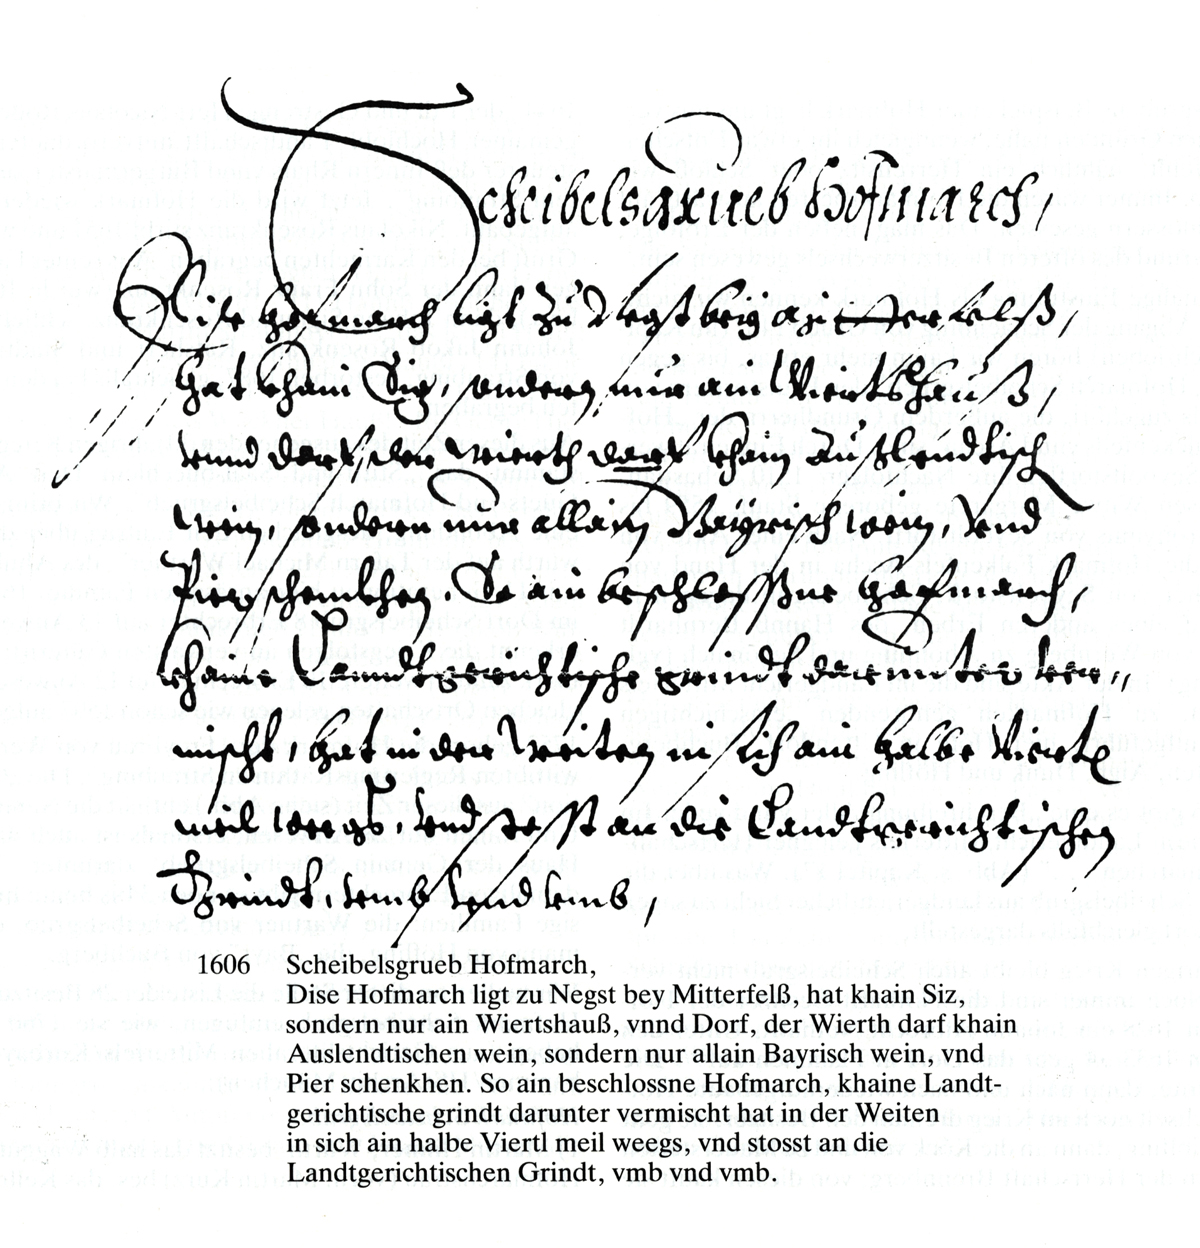 Scheibelsgrueb Hofmarch,
Dise Hofmarch ligt zu Negst bey Mitterfelß,
hat khain Siz, sondern nur ain Wiertshauß,
vnnd dorf, der Wierth darf khain Auslendtisch
wein, sondern nur allain Bayrisch wein, vnd
Pier schenkhen. So ain beschlossne Hofmarch,
khaine Landtgerichtische grindt darunter ver„
mischt, hat in der Weiten in sich ain halbe Viertl
meil weegs, vnd stosst an die Landtgerichtischen
Grindt, vmb vnd vmb,
1606 Scheibelsgrueb Hofmarch,
Dise Hofmarch ligt zu Negst bey Mitterfelß, hat khain Siz,
sondern nur ain Wiertshauß, vnnd Dorf, der Wierth darf khain
Auslendtischen wein, sondern nur allain Bayrisch wein, vnd
Pier schenkhen. So ain beschlossne Hofmarch, khaine Landt-
gerichtische grindt darunter vermischt hat in der Weiten
in sich ain halbe Viertl meil weegs, vnd stosst an die
Landtgerichtischen Grindt, vmb vnd vmb.